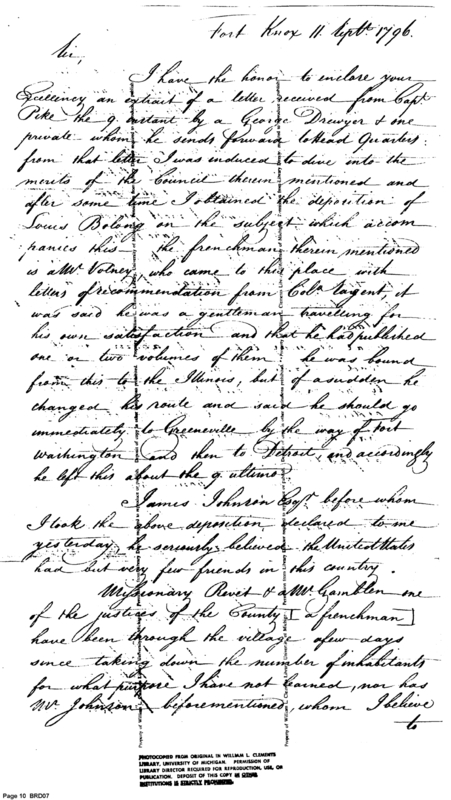 Fort Knox 11. Septr. 1796.
Sir,
I have the honor to enclose your
Excellency an extract of a letter received from Capt.
Pike the 9. instant by a George Drewyer & one
private whom he sends forward to Head Quarters:
from that letter I was induced to dive into the
merits of the Council therein mentioned and
after some time I obtained the deposition of
Louis Bolong on the subject which accom
panies this the frenchman therein mentioned
is a Mr. Volney, who came to this place with
letters of recommendation from Colo. Sargent, it
was said he was a gentleman travelling for
his own satisfaction and that he had published
one or two volumes of them he was bound
from this to the Illinois, but of a sudden he
changed his route and said he should go
immediately to Greeneville by the way of Fort
Washington and then to Detroit, and accordingly
he left this about the 9. ultimo
James Johnson Esqr. before whom
I took the above deposition, declared to me
yesterday, he seriously believed the United States
had but very few friends in this country.
Missionary Rivet & Mr. Gamblen one
of the justices of the County [a frenchman]
have been through the village a few days
since taking down the number of inhabitants
for what purpose I have not learned, nor has
Mr. Johnson beforementioned, whom I believe
to
PHOTOCOPIED FROM ORIGINAL IN WILLIAM L. CLEMENTS
LIBRARY, UNIVERSITY OF MICHIGAN. PERMISSION OF
LIBRARY DIRECTOR REQUIRED FOR REPRODUCTION, USE, OR
PUBLICATION. DEPOSIT OF THIS COPY IN OTHER
INSTITUTIONS IS STRICTLY PROHIBITED.
Page 10 BRD07